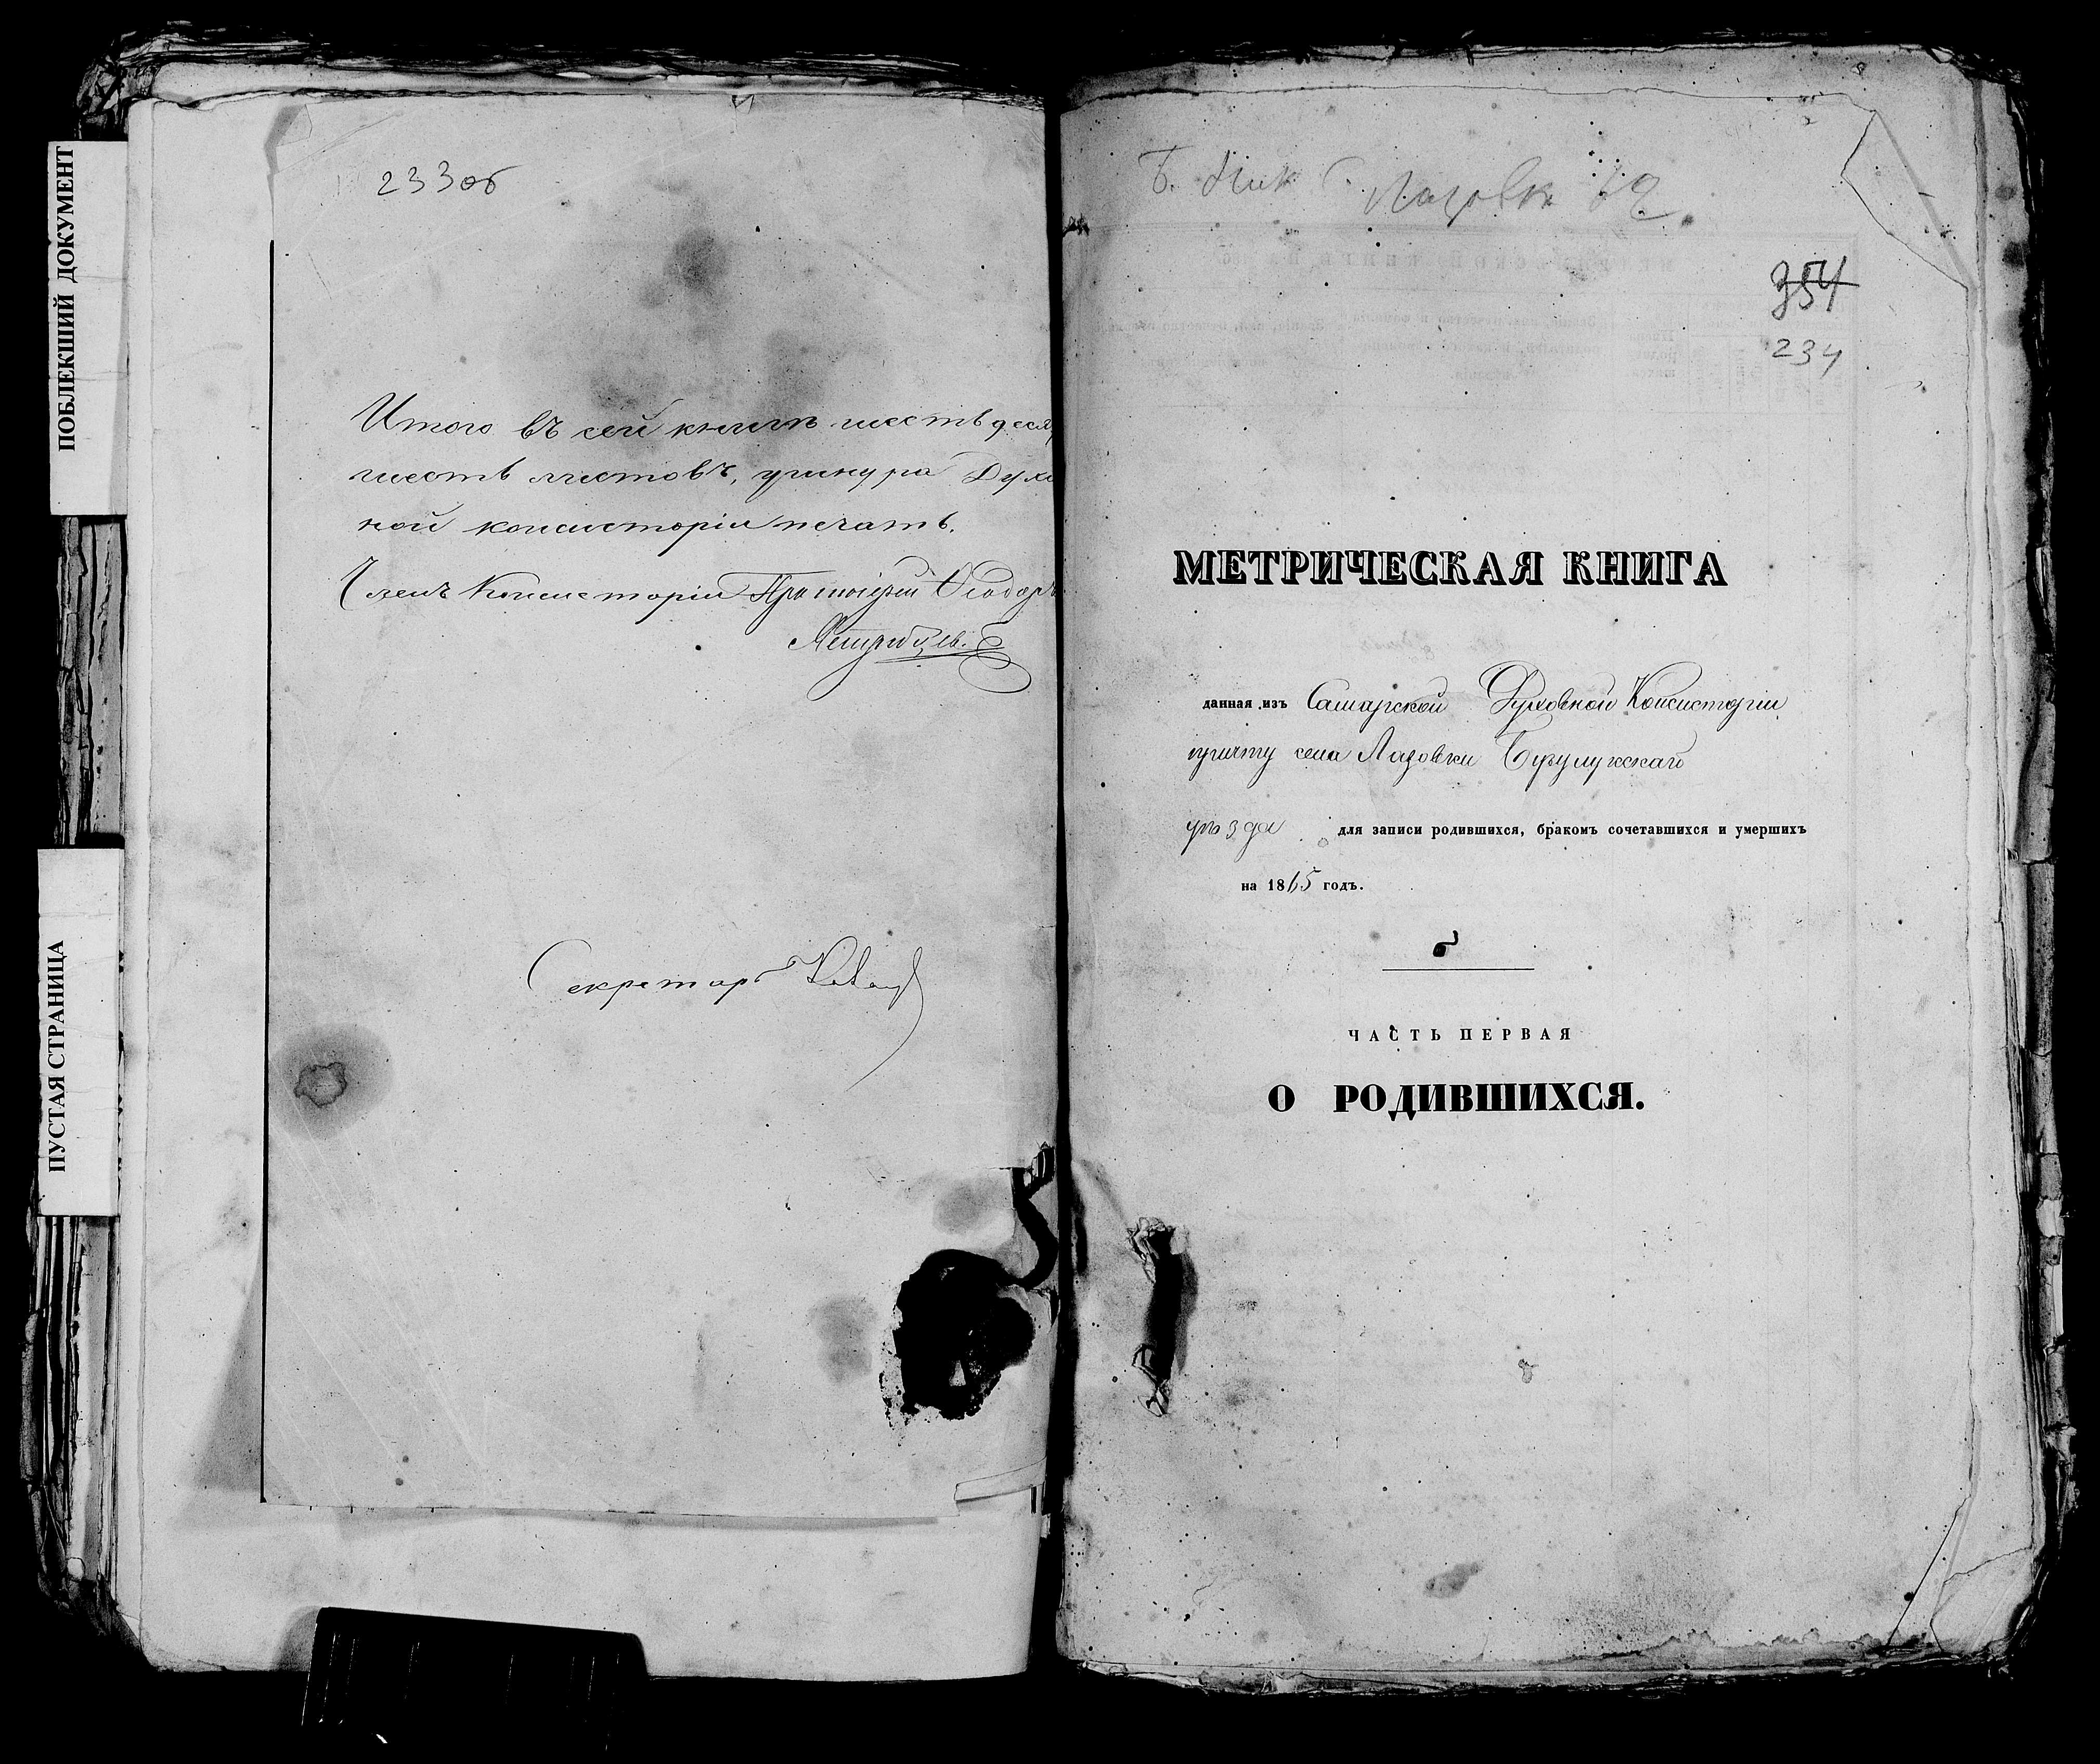 ПОБЛЕКШИЙ ДОКУМЕНТ
ПУСТАЯ СТРАНИЦА
233об
Итого въ сей книгѣ шестьдеся
шесть листовъ, у шнура Духо
ной консисторіи печать.
Членъ Консисторіи Протоіерей Ѳеодоръ
Секретарь
Б. Лазовка
354
234
МЕТРИЧЕСКАЯ КНИГА
данная изъ Самарской Духовной Консисторіи
причту села Лазовки Бузулукскаго
уѣзда для записи родившихся, бракомъ сочетавшихся и умершихъ
на 1865 годъ.
ЧАСТЬ ПЕРВАЯ
О РОДИВШИХСЯ.